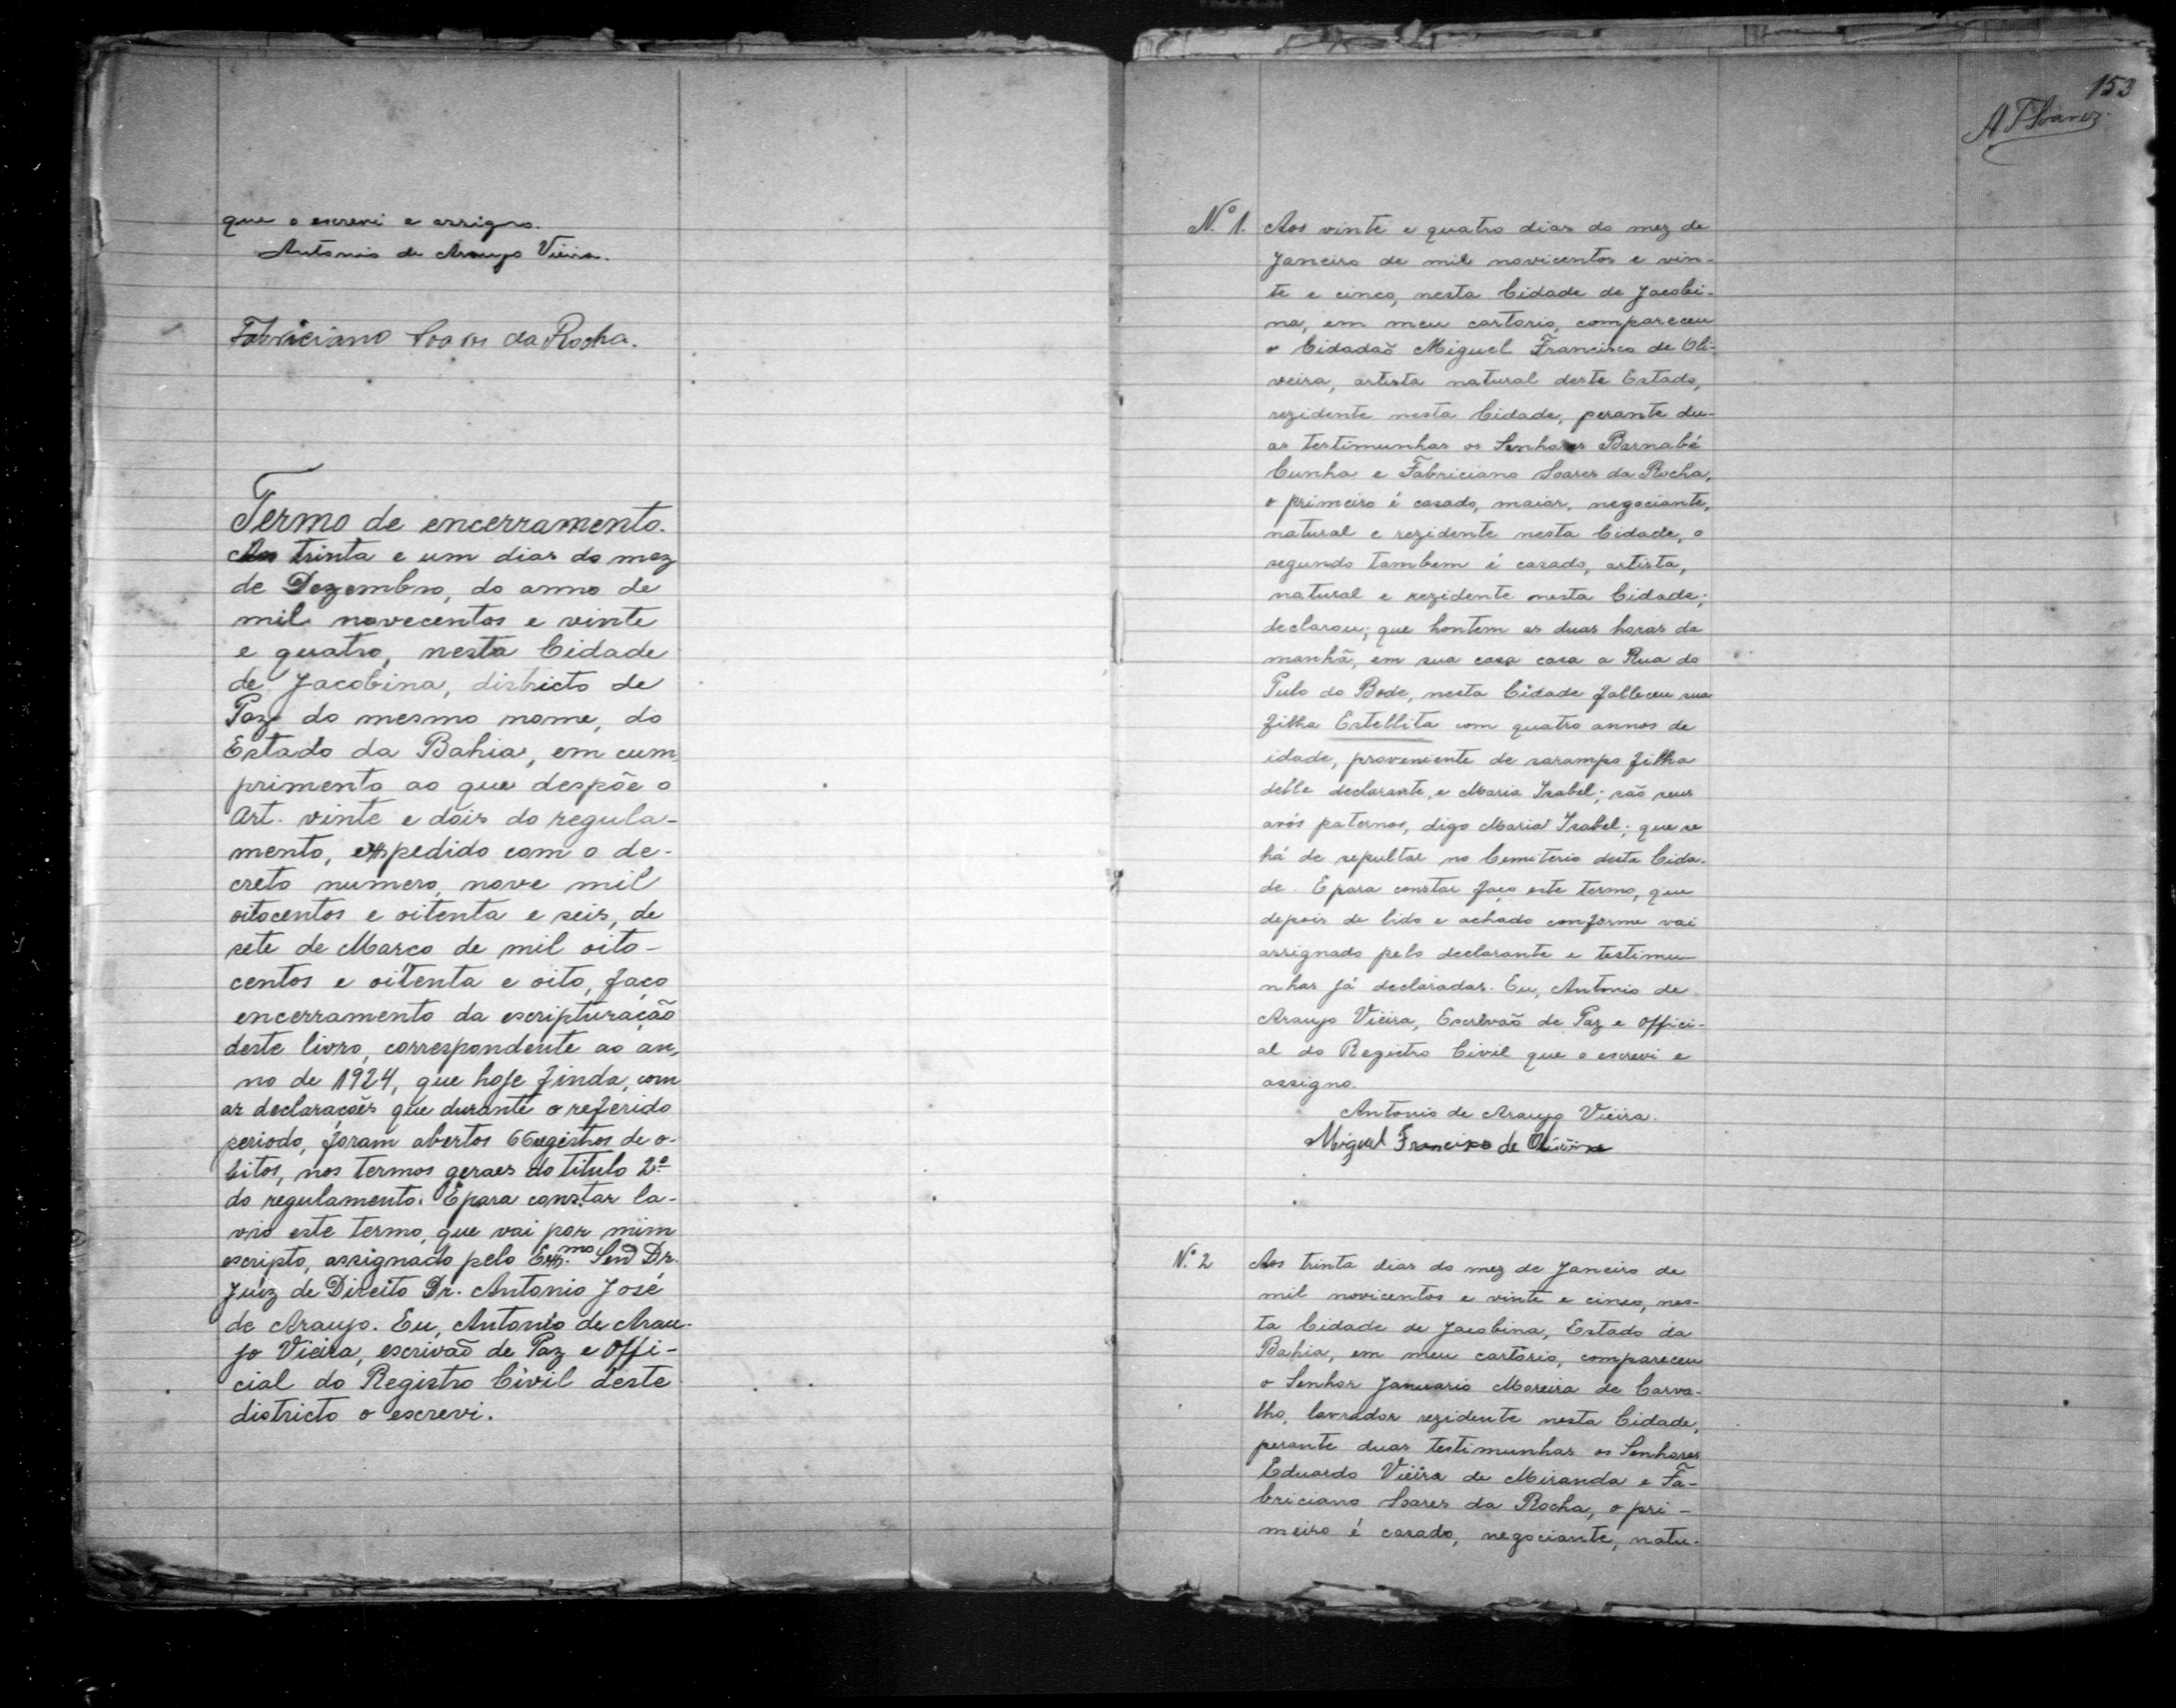 que o escrevi e assigno.
Antonio de Araujo Vieira.
Fabriciano Soares da Rocha.
Termo de encerramento.
Aos trinta e um dias do mez
de Dezembro, do anno de
mil novecentos e vinte
e quatro, nesta Cidade
de Jacobina, districto de
Paz do mesmo nome, do
Estado da Bahia, em cum
primento ao que despõe o
Art. vinte e dois do regula-
mento, expedido com o de-
creto numero, nove mil
oitocentos e oitenta e seis, de
sete de Março de mil oito-
centos e oitenta e oito, faço
encerramento da escripturação
deste livro, correspondente ao an,
no de 1924, que hoje finda, com
as declarações que durante o referido
periodo, foram abertos 66 registros de o-
bitos, nos termos geraes do titulo 2º
do regulamento. E para constar la-
vro este termo, que vai por mim
escripto, assignado pelo Exmo. Dr.
Juiz de Direito Dr. Antonio José
de Araujo. Eu, Antonio de Arau-
jo Vieira, escrivaõ de Paz e Offi-
cial do Registro Civil deste
districto o escrevi.
153
Nº 1. Aos vinte e quatro dias do mez de
Janeiro de mil novicentos e vin-
te e cinco, nesta Cidade de Jacobi-
na, em meu cartorio, compareceu
o Cidadaõ Miguel Francisco de Oli-
veira, artista natural deste Estado,
rezidente nesta Cidade, perante du-
as testimunhas os Senhores Barnabé
Cunha e Fabriciano Soares da Rocha,
o primeiro é casado, maior, negociante,
natural e rezidente nesta Cidade, o
segundo tambem é casado, artista,
natural e rezidente nesta Cidade;
declarou; que hontem as duas horas da
manhã, em sua casa casa a Rua do
Pulo do Bode, nesta Cidade falleceu sua
filha Estellita com quatro annos de
idade, proveniente de sarampo filha
delle declarante, e Maria Izabel; são seus
avós paternos, digo Maria Izabel; que se
há de sepultar no Cemiterio desta Cida-
de. E para constar faço este termo, que
depois de lido e achado conforme vai
assignado pelo declarante e testimu-
nhas já declaradas. Eu, Antonio de
Araujo Vieira, Escrivaõ de Paz e Offici-
al do Registro Civil que o escrevi e
assigno.
Antonio de Araujo Vieira.
Miguel Francisco de Oliveira
Nº 2 Aos trinta dias do mez de Janeiro de
mil novicentos e vinte e cinco, nes-
ta Cidade de Jacobina, Estado da
Bahia, em meu cartorio, compareceu
o Senhor Januario Moreira de Carva-
lho, lavrador rezidente nesta Cidade,
perante duas testimunhas os Senhores
Eduardo Vieira de Miranda e Fa-
briciano Soares da Rocha, o pri-
meiro é casado, negociante, natu-